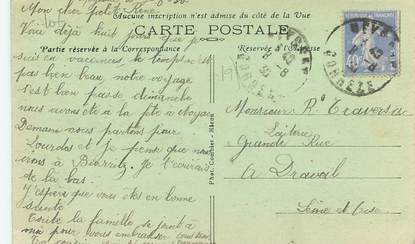 Mon cher petit René
Aucune inscription n'est admise du côté de la Vue
Voici déjà huit jours que je
CARTE POSTALE
Partie réservée à la Correspondance
Réservée à l'Adresse
suis en vacances, le temps n'est
pas bien beau notre voyage
s'est bien passé dimanche
nous avons été à la fête à
Demain nous partons pour
Lourdes et je pense que nous
irons à Biarritz. Je t'écrirai
de là bas.
J'espère que vous êtes en bonne
santé
Toute la famille se joint à
moi pour vous embrasser
Phot. Combier - Mâcon
CORRÈZE
40c
Monsieur R. Traversa
Laiterie
Grande Rue
à Draveil
Seine et Oise